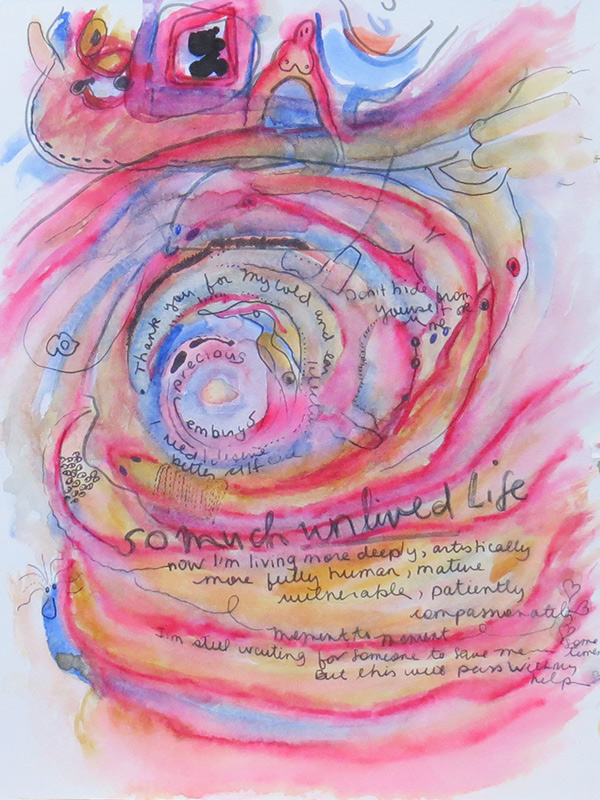 Thank you for my cold and ear
precious
embryo
I need / desire
better self care
Don't hide from
yourself or
me
so much unlived Life
now I'm living more deeply, artistically
more fully human, mature
vulnerable, patiently
compassionately
moment to moment
I'm still waiting for someone to save me
some
times
but this will pass with my
help